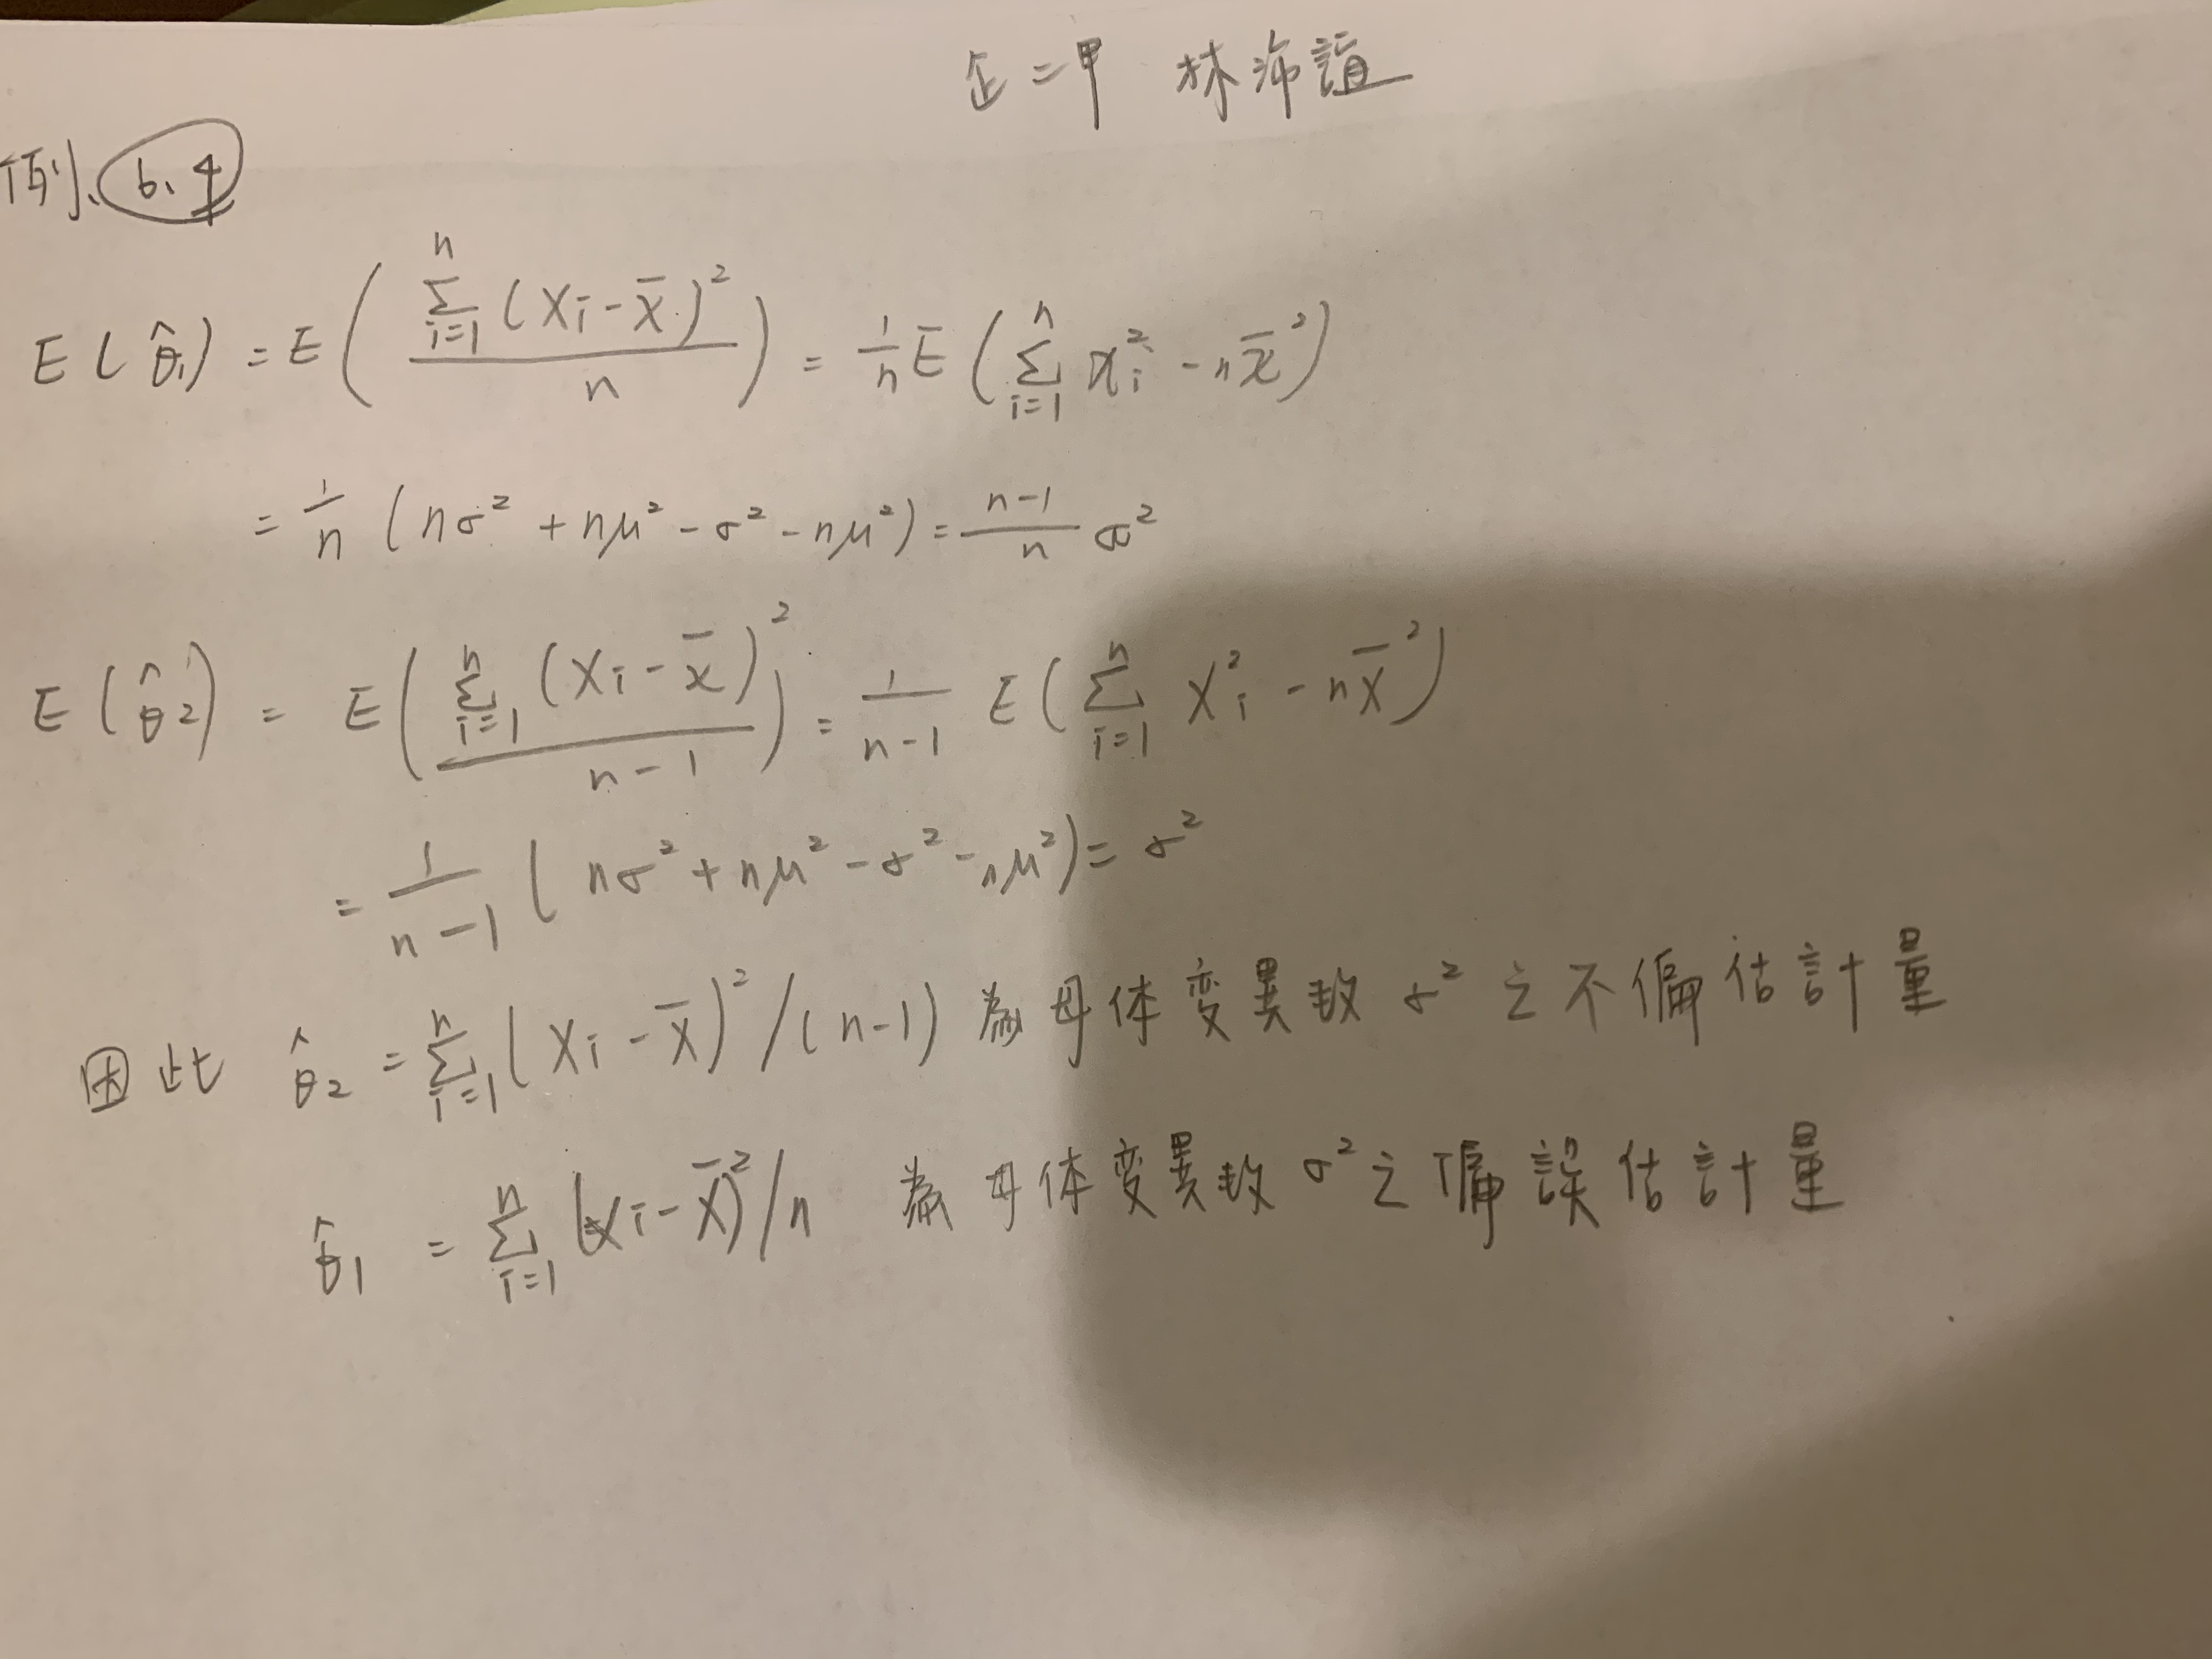 企二甲 林沛誼
例 6.4
E(θ̂₁) = E(∑ⁿᵢ₌₁(Xᵢ - X̄)² / n) = 1/n E(∑ⁿᵢ₌₁ Xᵢ² - nX̄²)
= 1/n (nσ² + nμ² - σ² - nμ²) = n-1/n σ²
E(θ̂₂) = E(∑ⁿᵢ₌₁(Xᵢ - X̄)² / n-1) = 1/n-1 E(∑ⁿᵢ₌₁ Xᵢ² - nX̄²)
= 1/n-1 (nσ² + nμ² - σ² - nμ²) = σ²
因此 θ̂₂ = ∑ⁿᵢ₌₁(Xᵢ - X̄)²/(n-1) 為母体變異數 σ² 之不偏估計量
θ̂₁ = ∑ⁿᵢ₌₁(Xᵢ - X̄)²/n 為母体變異數 σ² 之偏誤估計量